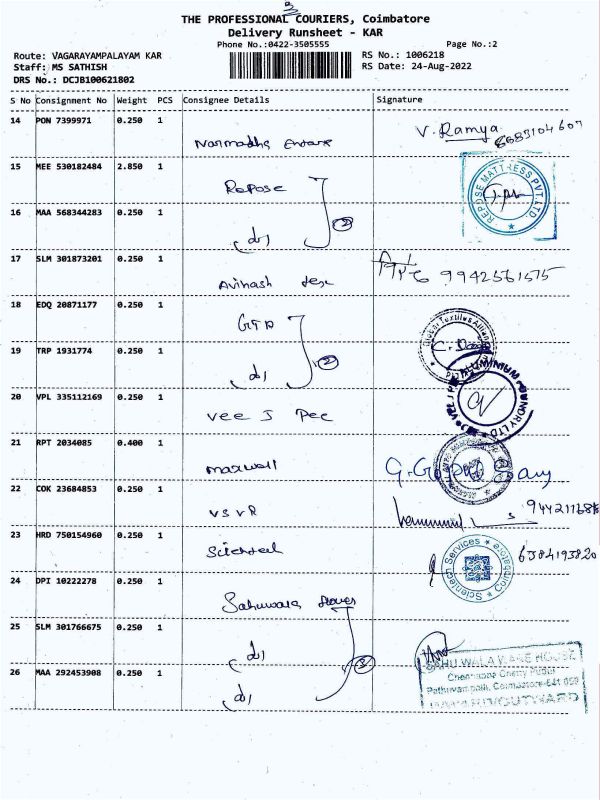 3
THE PROFESSIONAL COURIERS, Coimbatore
Delivery Runsheet - KAR
Phone No.:0422-3505555
Page No.:2
Route: VAGARAYAMPALAYAM KAR
RS No.: 1006218
Staff: MS SATHISH
RS Date: 24-Aug-2022
DRS No.: DCJB100621802
S No Consignment No Weight PCS Consignee Details Signature
14 PON 7399971 0.250 1
V. Ramya
15 MEE 530182484 2.850 1
Repose
REPOSE MATTRESS PVT. LTD
2
16 MAA 568344283 0.250 1
17 SLM 301873201 0.250 1
Avinash
9942561575
18 EDQ 20871177 0.250 1
GTA
Global Textiles Alliance
19 TRP 1931774 0.250 1
2
20 VPL 335112169 0.250 1
Vee J Pee
VEE J P ALUMINIUM FOUNDRY LTD
21 RPT 2034085 0.400 1
Maxwell
22 COK 23684853 0.250 1
VSVR
23 HRD 750154960 0.250 1
Scientech
Scientech Services Coimbatore
6384193820
24 DPI 10222278 0.250 1
Sahuwala
25 SLM 301766675 0.250 1
3
SAHUWALA WARE HOUSE
26 MAA 292453908 0.250 1
Coimbatore-641 059